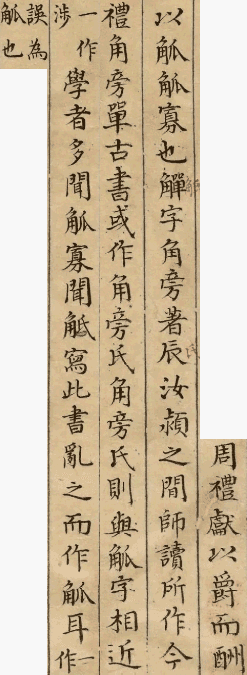 周禮獻以爵而酬
以觚觚寡也觶字角旁著辰汝潁之間師讀所作今
禮角旁單古書或作角旁氏角旁氏則與觚字相近
一作
涉
學者多聞觚寡聞觗寫此書亂之而作觚耳
一
作
誤為
觚也